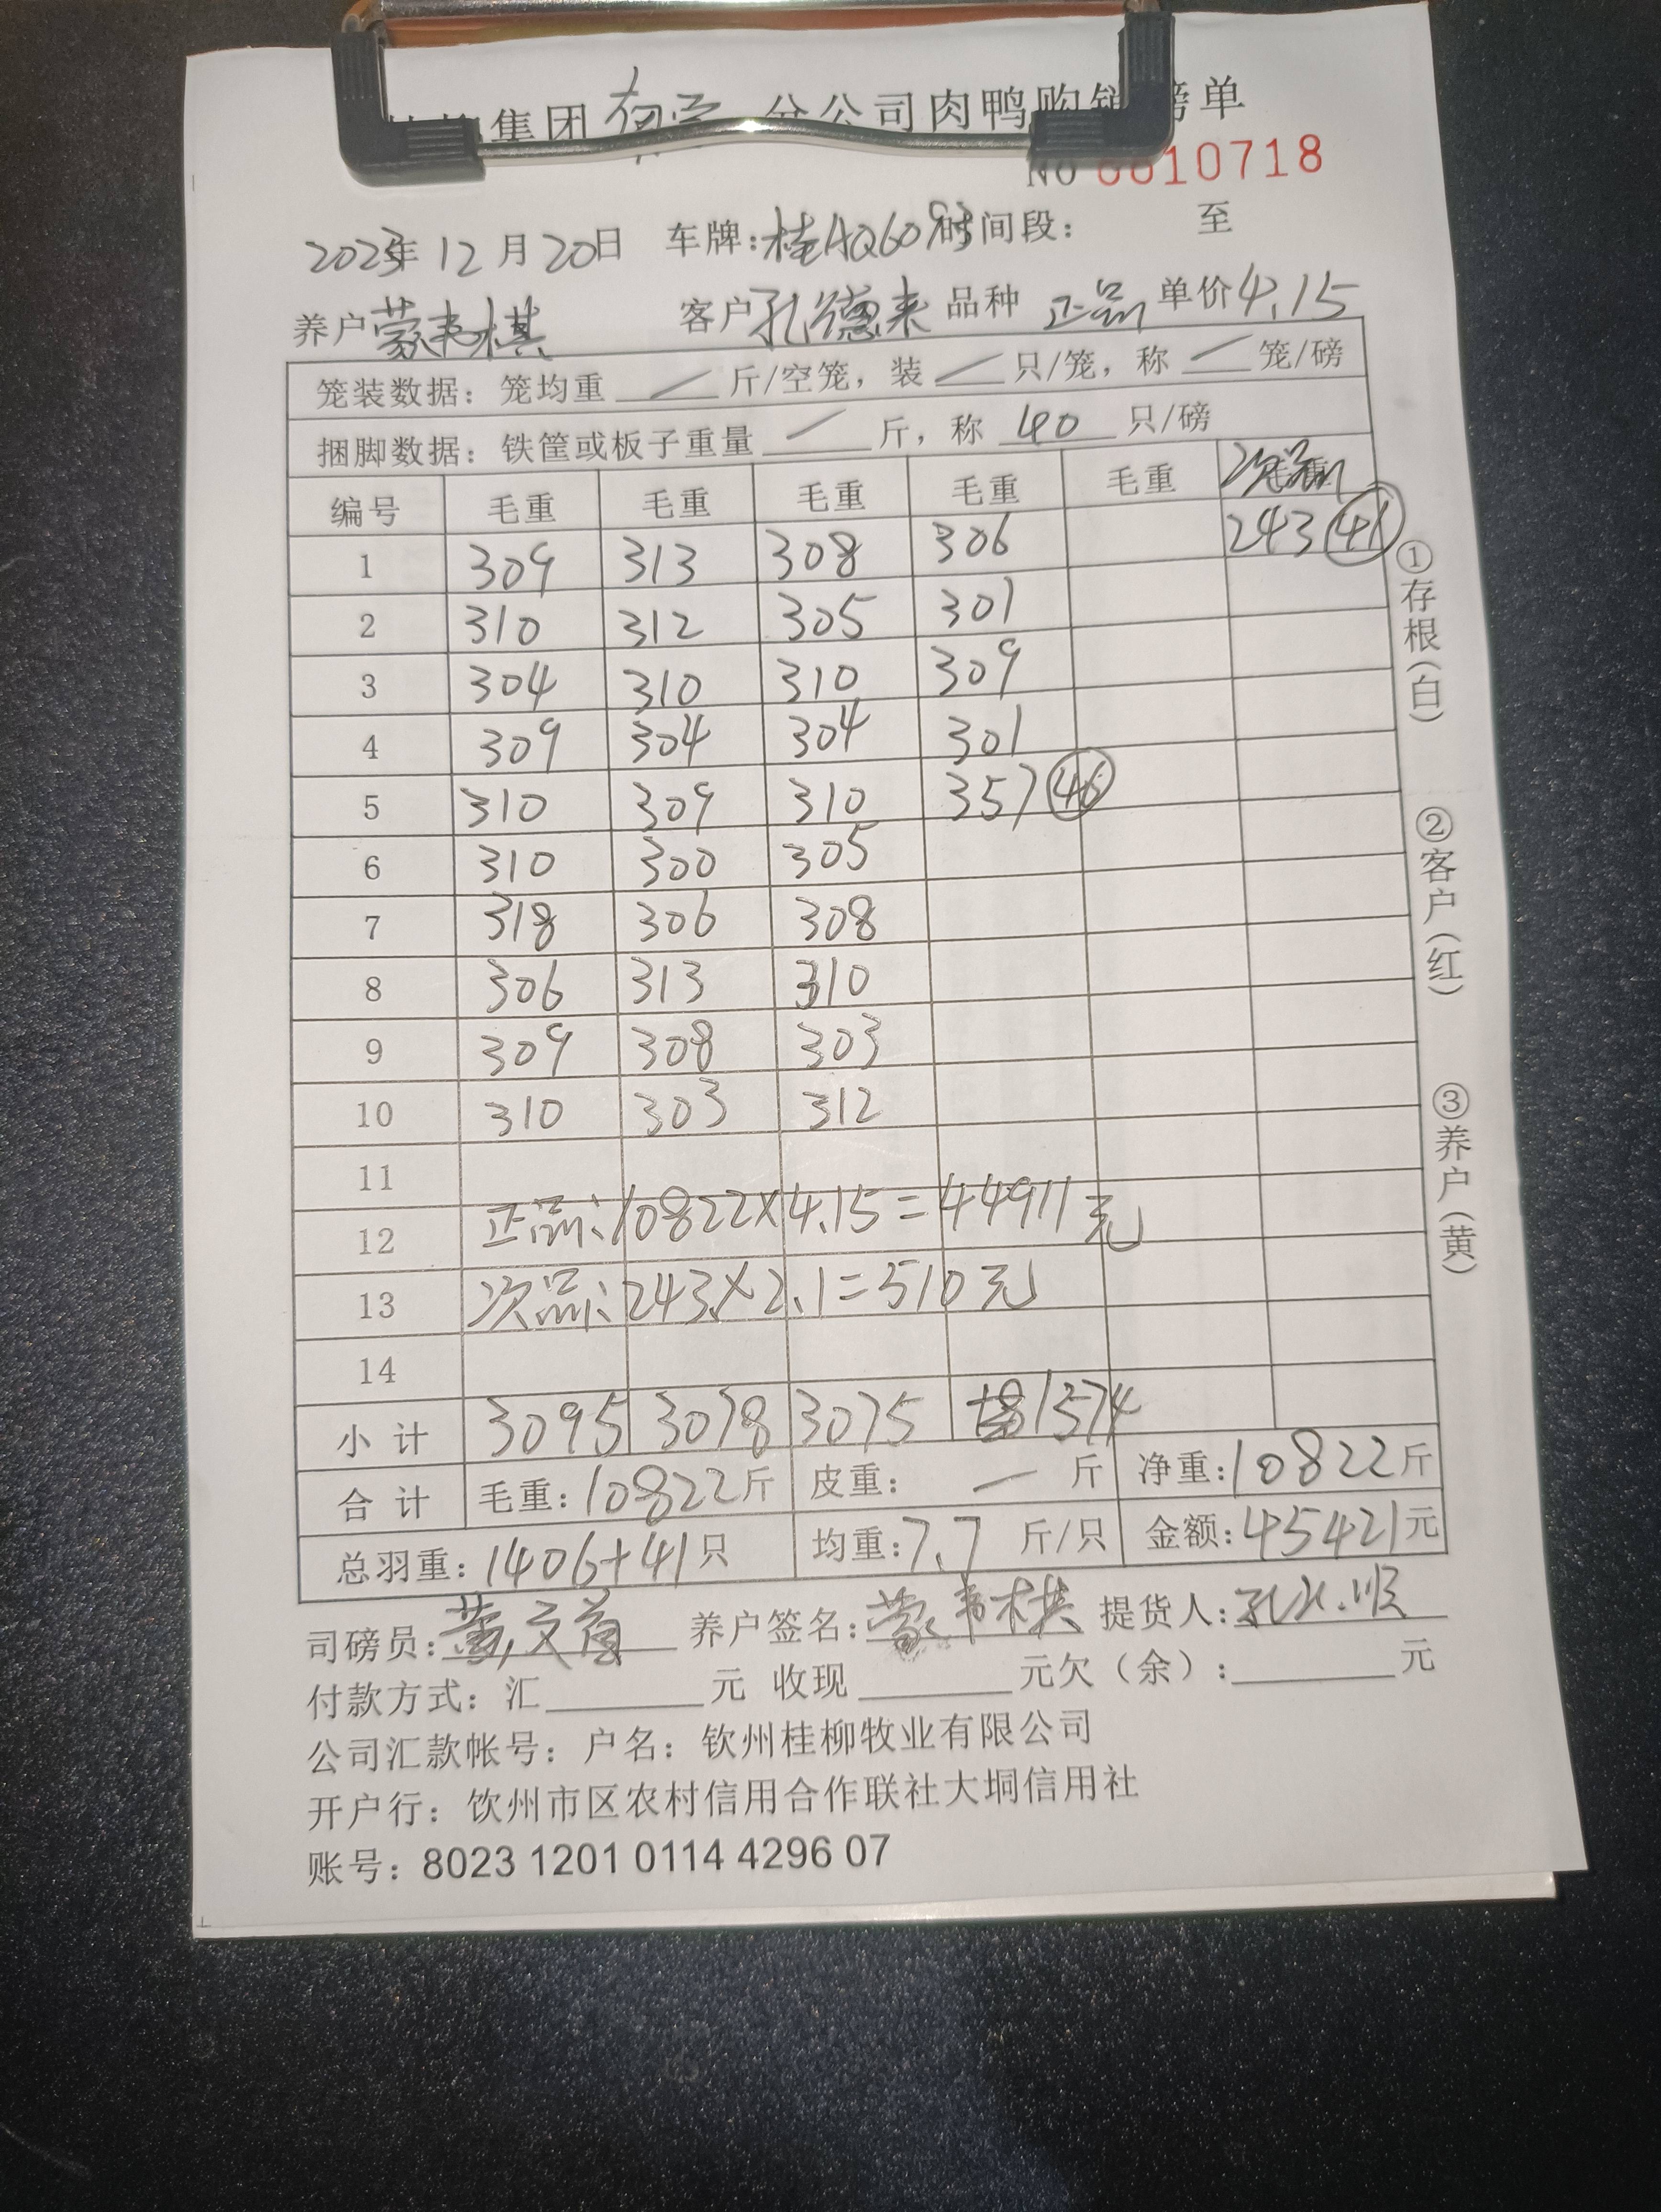 集团 分公司肉鸭购销磅单
No 0010718
2023年 12月20日 车牌:桂AQ6093 时间段: 至
养户 蒙韦棋 客户 孔德来 品种 正品 单价 4.15
笼装数据: 笼均重 — 斤/空笼, 装 — 只/笼, 称 — 笼/磅
捆脚数据: 铁筐或板子重量 — 斤, 称 40 只/磅
编号 毛重 毛重 毛重 毛重 毛重 次品
1 309 313 308 306 243 41
2 310 312 305 301
3 304 310 310 309
4 309 304 304 301
5 310 309 310 357 46
6 310 300 305
7 318 306 308
8 306 313 310
9 309 308 303
10 310 303 312
11
12 正品:10822×4.15=44911元
13 次品:243×2.1=510元
14
小计 3095 3078 3075 1574
合计 毛重:10822斤 皮重: — 斤 净重:10822斤
总羽重:1406+41只 均重:7.7 斤/只 金额:45421元
司磅员: 养户签名:蒙韦棋 提货人:
付款方式: 汇 元 收现 元欠(余): 元
公司汇款帐号: 户名: 钦州桂柳牧业有限公司
开户行: 钦州市区农村信用合作联社大垌信用社
账号: 8023 1201 0114 4296 07
①存根(白)
②客户(红)
③养户(黄)